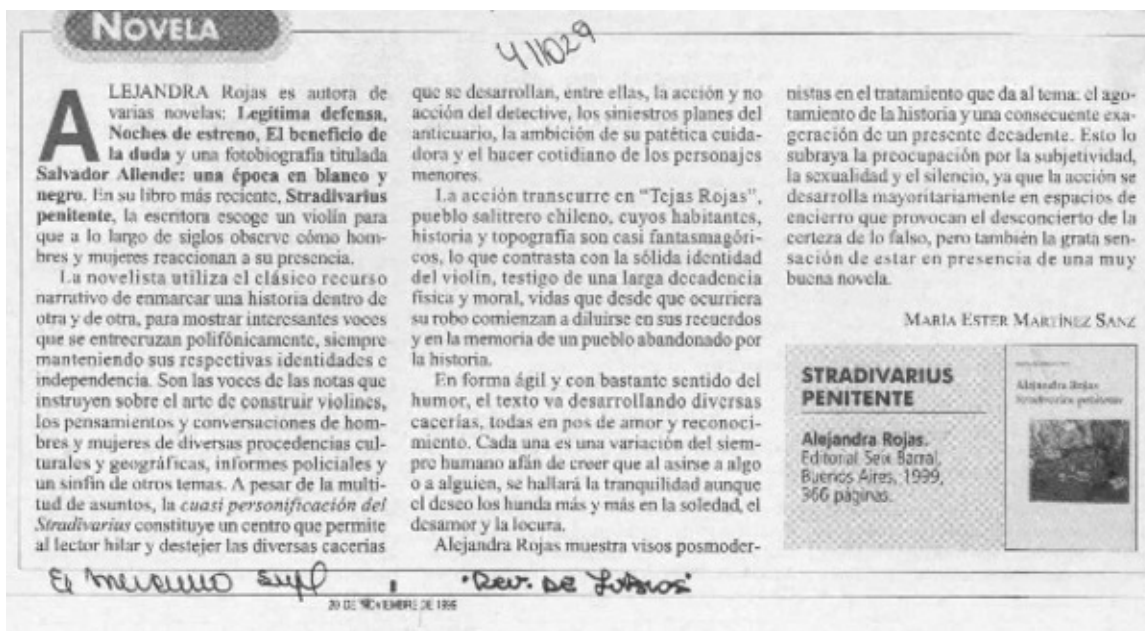 NOVELA
411029
ALEJANDRA Rojas es autora de
varias novelas: Legítima defensa,
Noches de estreno, El beneficio de
la duda y una fotobiografía titulada
Salvador Allende: una época en blanco y
negro. En su libro más reciente, Stradivarius
penitente, la escritora escoge un violín para
que a lo largo de siglos observe cómo hom-
bres y mujeres reaccionan a su presencia.
La novelista utiliza el clásico recurso
narrativo de enmarcar una historia dentro de
otra y de otra, para mostrar interesantes voces
que se entrecruzan polifónicamente, siempre
manteniendo sus respectivas identidades e
independencia. Son las voces de las notas que
instruyen sobre el arte de construir violines,
los pensamientos y conversaciones de hom-
bres y mujeres de diversas procedencias cul-
turales y geográficas, informes policiales y
un sinfín de otros temas. A pesar de la multi-
tud de asuntos, la cuasi personificación del
Stradivarius constituye un centro que permite
al lector hilar y destejer las diversas cacerías
que se desarrollan, entre ellas, la acción y no
acción del detective, los siniestros planes del
anticuario, la ambición de su patética cuida-
dora y el hacer cotidiano de los personajes
menores.
La acción transcurre en "Tejas Rojas",
pueblo salitrero chileno, cuyos habitantes,
historia y topografía son casi fantasmagóri-
cos, lo que contrasta con la sólida identidad
del violín, testigo de una larga decadencia
física y moral, vidas que desde que ocurriera
su robo comienzan a diluirse en sus recuerdos
y en la memoria de un pueblo abandonado por
la historia.
En forma ágil y con bastante sentido del
humor, el texto va desarrollando diversas
cacerías, todas en pos de amor y reconoci-
miento. Cada una es una variación del siem-
pre humano afán de creer que al asirse a algo
o a alguien, se hallará la tranquilidad aunque
el deseo los hunda más y más en la soledad, el
desamor y la locura.
Alejandra Rojas muestra visos posmoder-
nistas en el tratamiento que da al tema: el ago-
tamiento de la historia y una consecuente exa-
geración de un presente decadente. Esto lo
subraya la preocupación por la subjetividad,
la sexualidad y el silencio, ya que la acción se
desarrolla mayoritariamente en espacios de
encierro que provocan el desconcierto de la
certeza de lo falso, pero también la grata sen-
sación de estar en presencia de una muy
buena novela.
MARÍA ESTER MARTÍNEZ SANZ
STRADIVARIUS
PENITENTE
Alejandra Rojas.
Editorial Seix Barral,
Buenos Aires, 1999,
366 páginas.
Alejandra Rojas
Stradivarius penitente
El Mercurio Supl "Rev. de Libros"
20 DE NOVIEMBRE DE